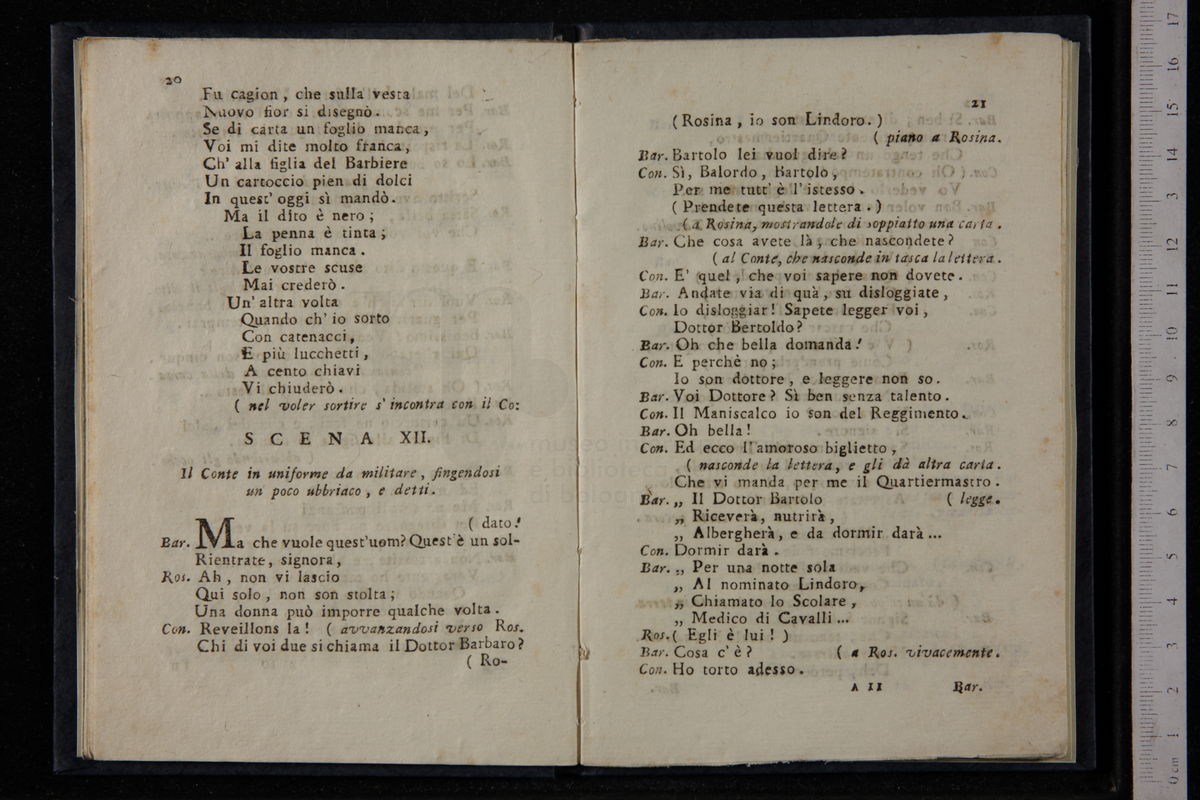 20
Fu cagion, che sulla vesta
Nuovo fior si disegnò.
Se di carta un foglio manca,
Voi mi dite molto franca,
Ch' alla figlia del Barbiere
Un cartoccio pien di dolci
In quest' oggi sì mandò.
Ma il dito è nero;
La penna è tinta;
Il foglio manca.
Le vostre scuse
Mai crederò.
Un' altra volta
Quando ch' io sorto
Con catenacci,
E più lucchetti,
A cento chiavi
Vi chiuderò.
( nel voler sortire s' incontra con il Co:
SCENA XII.
Il Conte in uniforme da militare, fingendosi
un poco ubbriaco, e detti.
( dato!
Bar. Ma che vuole quest'uom? Quest'è un sol-
Rientrate, signora,
Ros. Ah, non vi lascio
Qui solo, non son stolta;
Una donna può imporre qualche volta.
Con. Reveillons la! ( avvanzandosi verso Ros.
Chi di voi due si chiama il Dottor Barbaro?
( Ro-
21
(Rosina, io son Lindoro.)
( piano a Rosina.
Bar. Bartolo lei vuol dire?
Con. Sì, Balordo, Bartolo,
Per me tutt' è l' istesso.
( Prendete questa lettera.)
( a Rosina, mostrandole di soppiatto una carta.
Bar. Che cosa avete là, che nascondete?
( al Conte, che nasconde in tasca la lettera.
Con. E' quel, che voi sapere non dovete.
Bar. Andate via di quà, su disloggiate,
Con. Io disloggiar! Sapete legger voi,
Dottor Bertoldo?
Bar. Oh che bella domanda!
Con. E perchè no;
Io son dottore, e leggere non so.
Bar. Voi Dottore? Sì ben senza talento.
Con. Il Maniscalco io son del Reggimento.
Bar. Oh bella!
Con. Ed ecco l'amoroso biglietto,
( nasconde la lettera, e gli dà altra carta.
Che vi manda per me il Quartiermastro.
Bar. „ Il Dottor Bartolo ( legge.
„ Riceverà, nutrirà,
„ Albergherà, e da dormir darà...
Con. Dormir darà.
Bar. „ Per una notte sola
„ Al nominato Lindoro,
„ Chiamato lo Scolare,
„ Medico di Cavalli...
Ros. ( Egli è lui! )
Bar. Cosa c' è? ( a Ros. vivacemente.
Con. Ho torto adesso.
A 11 Bar.